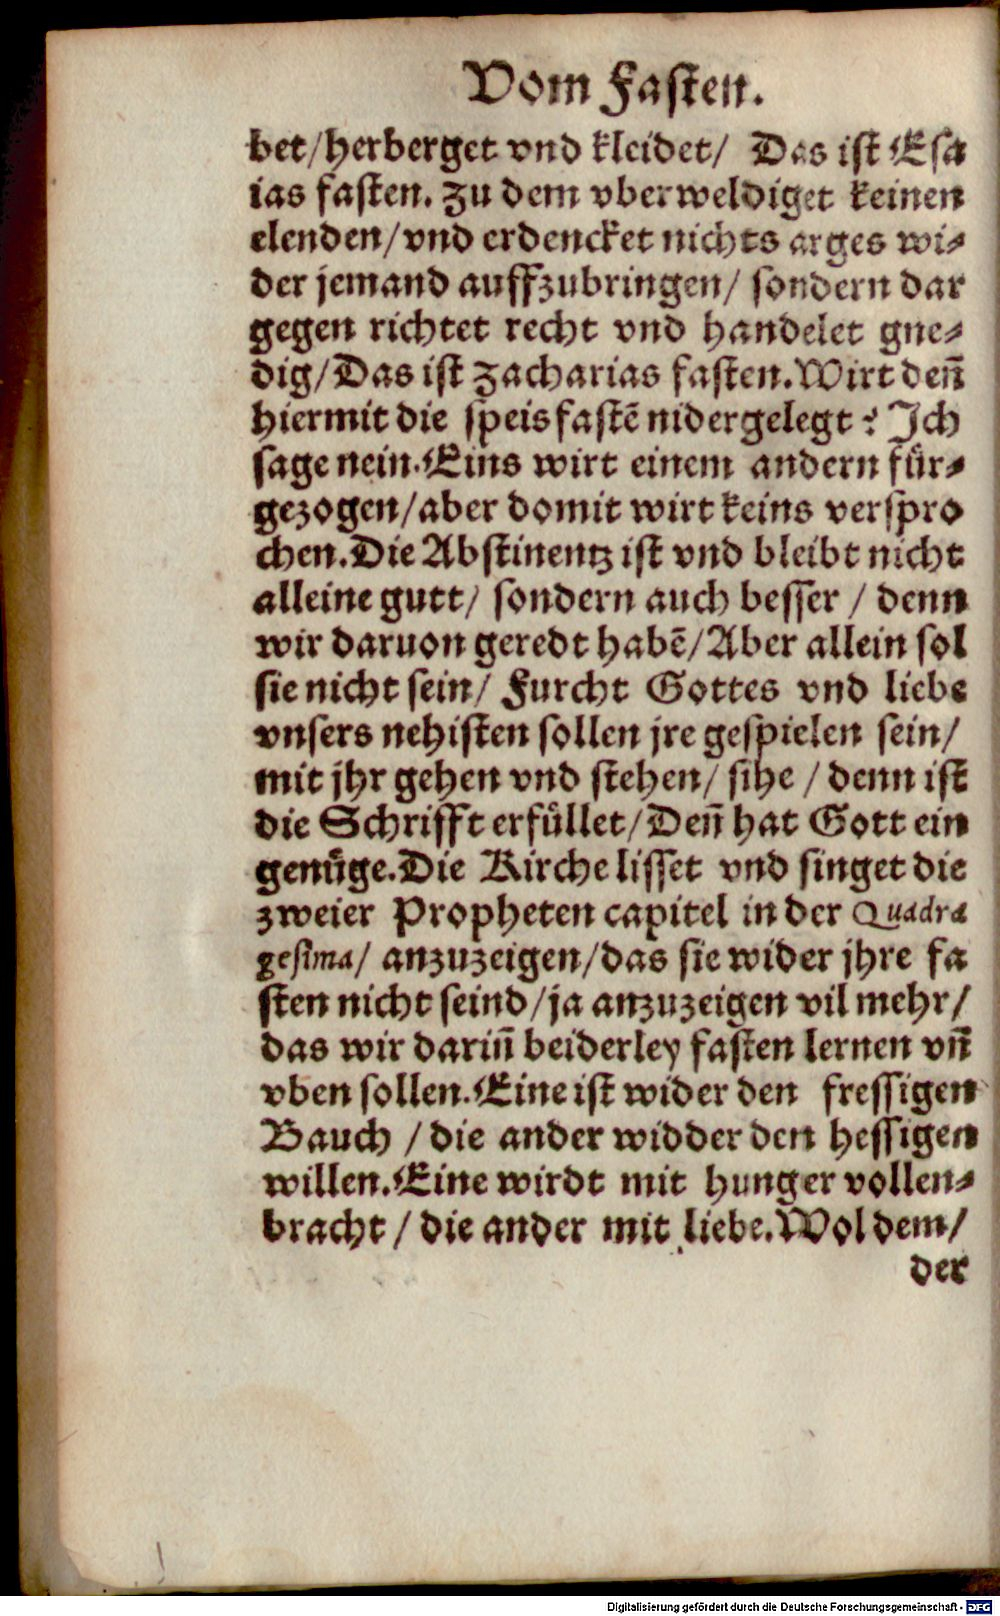 Vom Fasten.
bet/herberget vnd kleidet/ Das ist Esa
ias fasten. Zu dem vberweldiget keinen
elenden/vnd erdencket nichts arges wi⸗
der jemand auffzubringen/ sondern dar
gegen richtet recht vnd handelet gne⸗
dig/Das ist Zacharias fasten. Wirt deñ
hiermit die speisfastẽ nidergelegt? Ich
sage nein. Eins wirt einem andern fuͤr⸗
gezogen/aber domit wirt keins verspro
chen. Die Abstinentz ist vnd bleibt nicht
alleine gutt/ sondern auch besser / denn
wir daruon geredt habẽ/Aber allein sol
sie nicht sein/ Furcht Gottes vnd liebe
vnsers nehisten sollen jre gespielen sein/
mit jhr gehen vnd stehen/ sihe / denn ist
die Schrifft erfuͤllet/Deñ hat Gott ein
genuͤge. Die Kirche lisset vnd singet die
zweier Propheten capitel in der Quadra
gesima/ anzuzeigen/das sie wider jhre fa
sten nicht seind/ja anzuzeigen vil mehr/
das wir dariñ beiderley fasten lernen vñ
vben sollen. Eine ist wider den fressigen
Bauch / die ander widder den hessigen
willen. Eine wirdt mit hunger vollen⸗
bracht / die ander mit liebe. Wol dem/
der
Digitalisierung gefördert durch die Deutsche Forschungsgemeinschaft - DFG